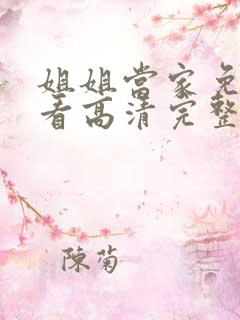 姐姐當家免
看高清完整
陳菊